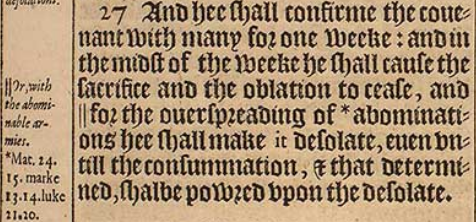 desolations.
||Or, with
the abomi-
nable ar-
mies.
*Mat. 24.
15. marke
13.14.luke
21.20.
27 And hee shall confirme the coue-
nant with many for one weeke: and in
the midst of the weeke he shall cause the
sacrifice and the oblation to cease, and
||for the ouerspreading of *abominati-
ons hee shall make it desolate, euen vn-
till the consummation, & that determi-
ned, shalbe powred vpon the desolate.